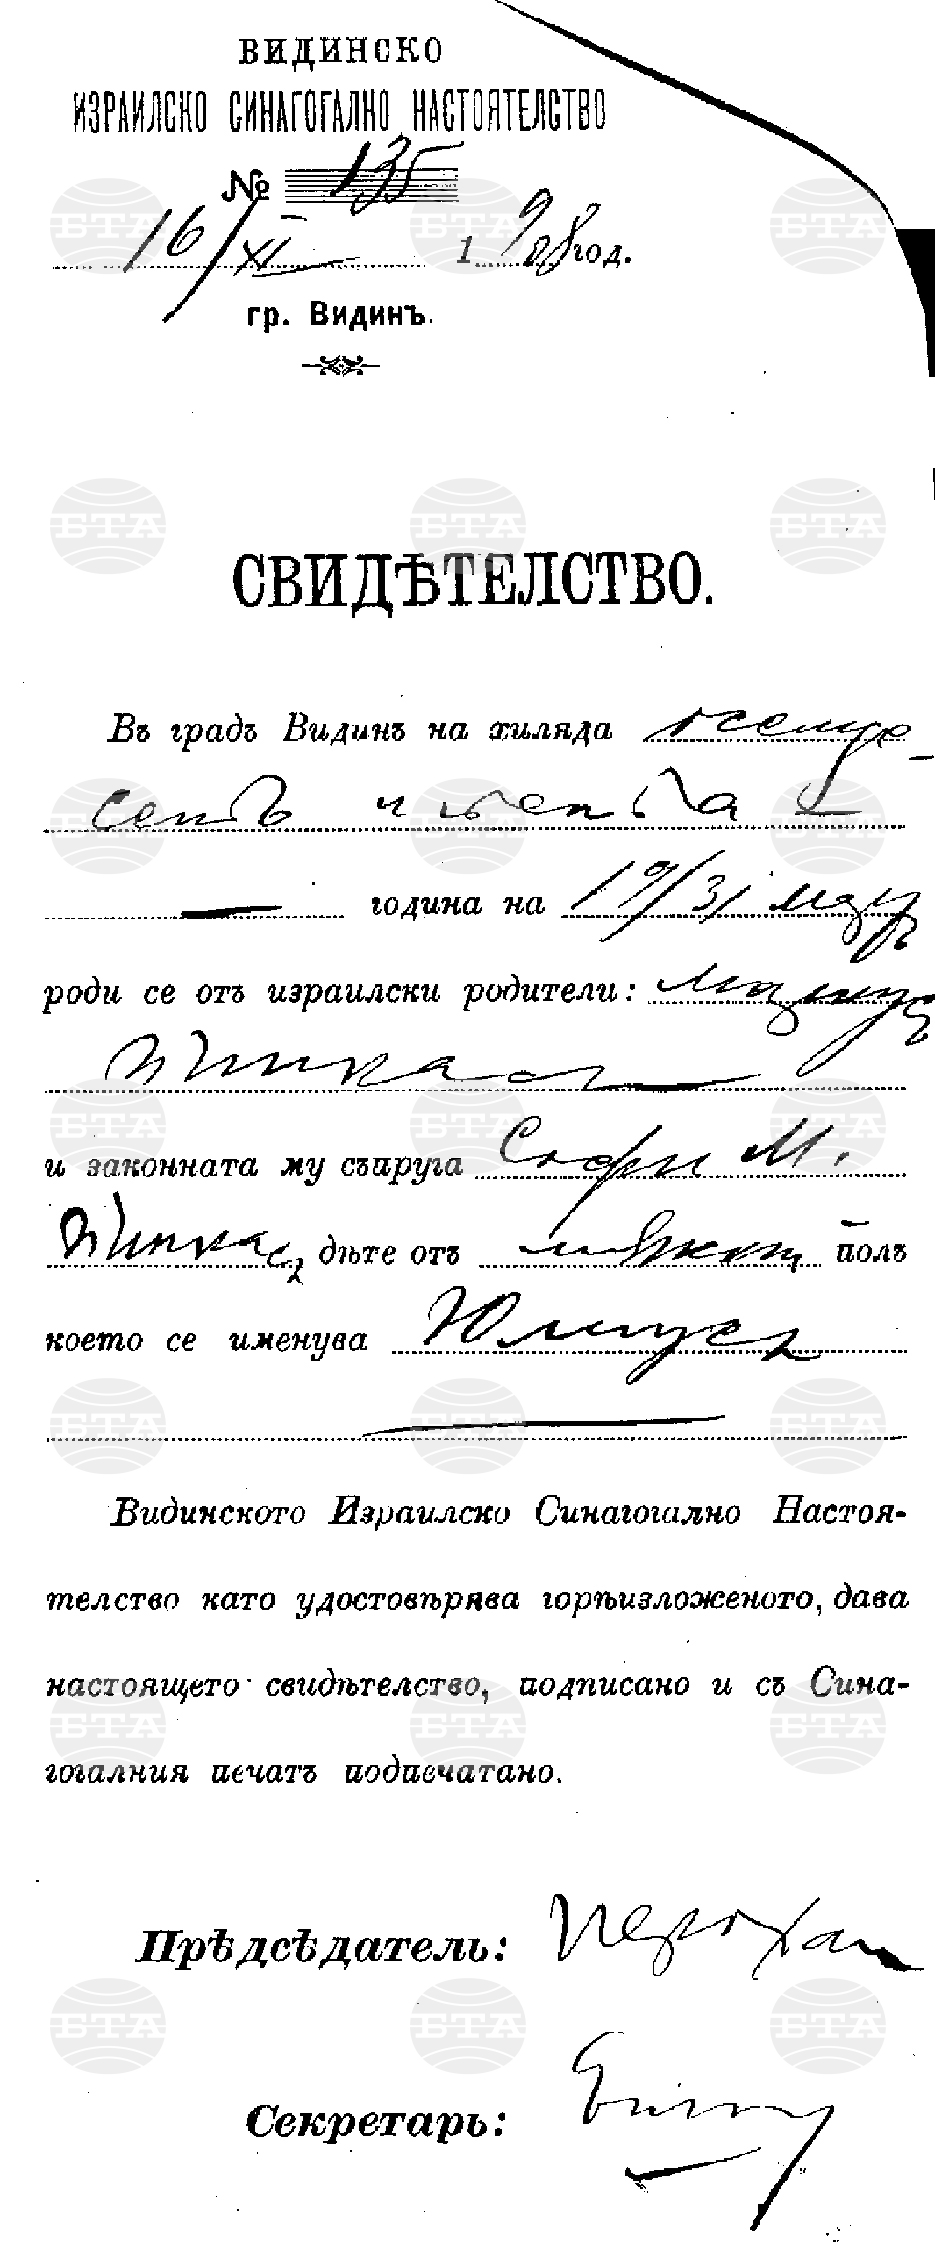 ВИДИНСКО
ИЗРАИЛСКО СИНАГОГАЛНО НАСТОЯТЕЛСТВО
№ 135
16/XI 1908 год.
гр. Видинъ.
СВИДѢТЕЛСТВО.
Въ градъ Видинъ на хиляда осемдесетъ и
година на 19/31 мартъ
роди се отъ израилски родители:
Пинкасъ
и законната му съпруга Софи М.
Пинкасъ дѣте отъ мѫжки полъ
което се именува Юлиусъ
Видинското Израилско Синагогално Настоя-
телство като удостовѣрява горѣизложеното, дава
настоящето свидѣтелство, подписано и съ Сина-
гогалния печатъ подпечатано.
Прѣдсѣдатель:
Секретарь:
БТА